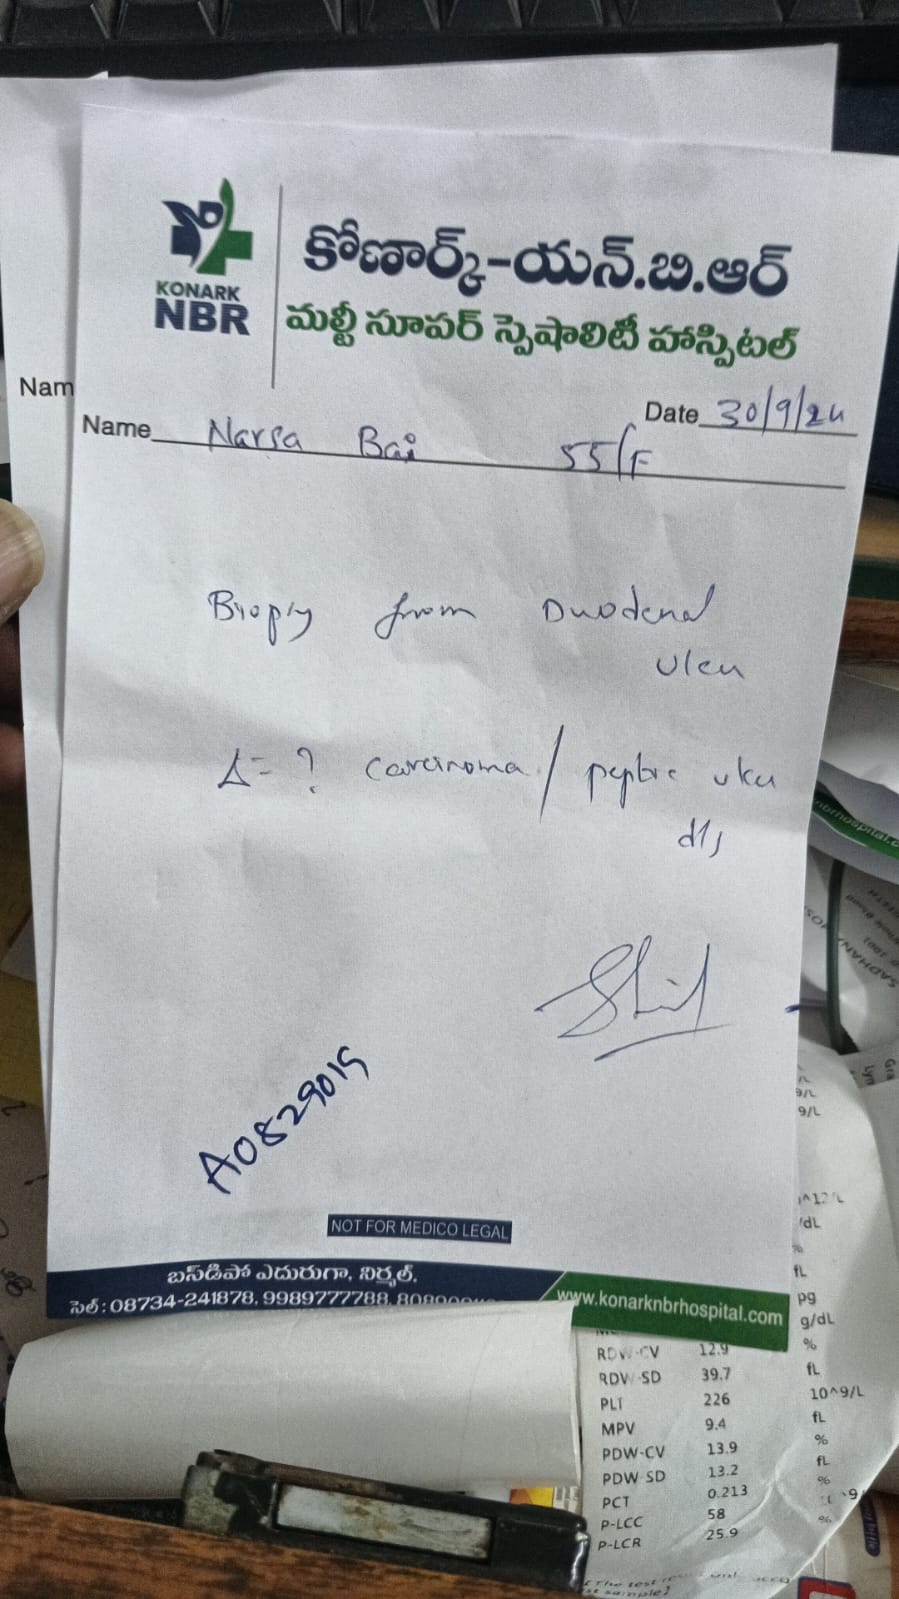 కోణార్క్-యన్.బి.ఆర్
KONARK
NBR
మల్టీ సూపర్ స్పెషాలిటీ హాస్పిటల్
Nam
Date 30/9/24
Name Narsa Bai 55/F
Biopsy from Duodenal
ulcer
Δ= ? carcinoma / peptic ulcer
A0829015
NOT FOR MEDICO LEGAL
బస్‌డిపో ఎదురుగా, నిర్మల్.
సెల్ : 08734-241878, 9989777788,
www.konarknbrhospital.com
nbrhospital.c
SADHANA
9/L
9/L
/dL
%
fL
pg
g/dL
RDW-CV 12.9 %
RDW-SD 39.7 fL
PLT 226 10^9/L
MPV 9.4 fL
PDW-CV 13.9 %
PDW-SD 13.2 fL
PCT 0.213 %
P-LCC 58
P-LCR 25.9 %